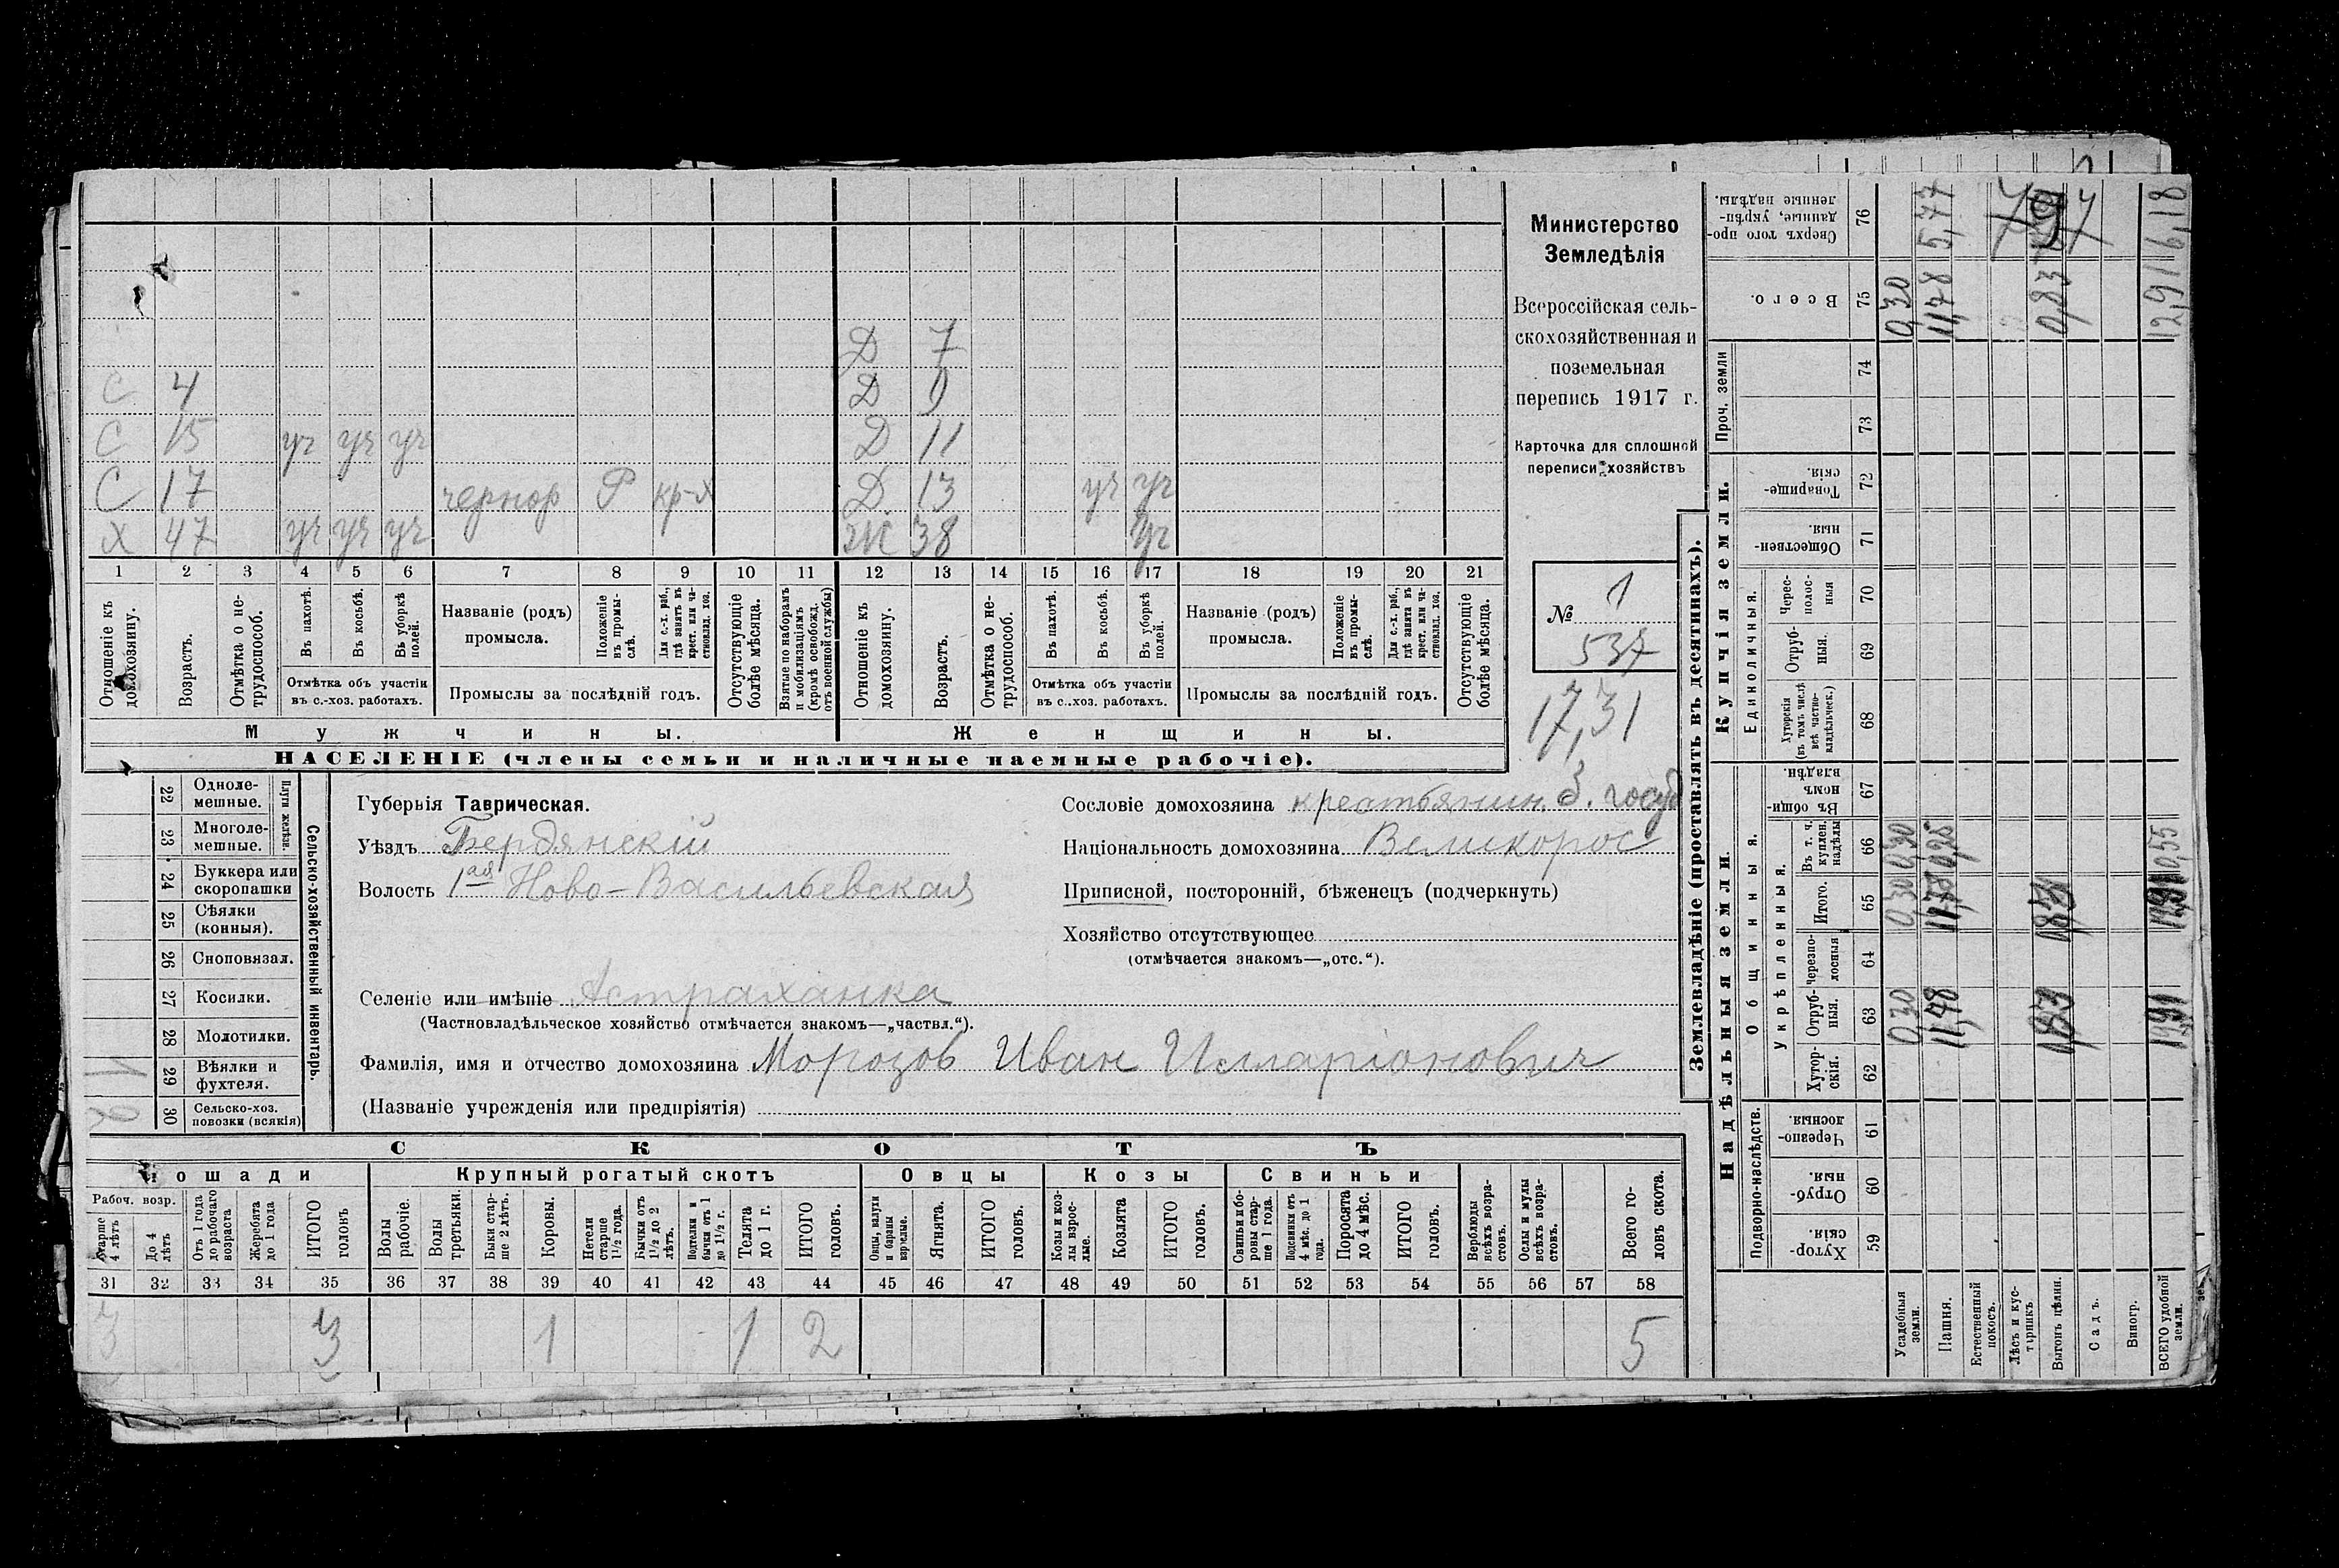 Д 7
С 4 Д 9
С 15 уч уч уч Д 11
С 17 чернор Р кр-х Д 13 уч уч
Х 47 уч уч уч Ж 38 уч
1 2 3 4 5 6 7 8 9 10 11 12 13 14 15 16 17 18 19 20 21
Отношеніе къ домохозяину.
Возрастъ.
Отмѣтка о не-трудоспособ.
Въ пахотѣ.
Въ косьбѣ.
Въ уборкѣ полей.
Отмѣтка объ участіи въ с.-хоз. работахъ.
Названіе (родъ) промысла.
Положеніе въ промы-слѣ.
Для с.-х. раб., гдѣ занятъ въ крест. или ча-стновлад. хоз.
Промыслы за послѣдній годъ.
Отсутствующіе болѣе мѣсяца.
Взятые по наборамъ и мобилизаціямъ (кромѣ освобожд. отъ военной службы)
Отношеніе къ домохозяину.
Возрастъ.
Отмѣтка о не-трудоспособ.
Въ пахотѣ.
Въ косьбѣ.
Въ уборкѣ полей.
Отмѣтка объ участіи въ с.-хоз. работахъ.
Названіе (родъ) промысла.
Положеніе въ промы-слѣ.
Для с.-х. раб., гдѣ занята въ крест. или ча-стновлад. хоз.
Промыслы за послѣдній годъ.
Отсутствующіе болѣе мѣсяца.
Мужчины. Женщины.
НАСЕЛЕНІЕ (члены семьи и наличные наемные рабочіе).
Министерство
Земледѣлія
Всероссійская сель-
скохозяйственная и
поземельная
перепись 1917 г.
Карточка для сплошной
переписи хозяйствъ
№ 1
537
17,31
22 Одноле-мешные.
23 Многоле-мешные.
Плуги желѣзн.
24 Буккера или скоропашки
25 Сѣялки (конныя).
26 Сноповязал.
27 Косилки.
28 Молотилки.
1 29 Вѣялки и фухтеля.
2 30 Сельско-хоз. повозки (всякія)
Сельско-хозяйственный инвентарь.
Губернія Таврическая.
Уѣздъ Бердянскій
Волость 1ая Ново-Васильевская
Селеніе или имѣніе Астраханка
(Частновладѣльческое хозяйство отмѣчается знакомъ—„частвл.“).
Фамилія, имя и отчество домохозяина Морозов Иван Илларіонович
(Названіе учрежденія или предпріятія)
Сословіе домохозяина крестьянин б. госуд
Національность домохозяина Великорос
Приписной, посторонній, бѣженец (подчеркнуть)
Хозяйство отсутствующее
(отмѣчается знакомъ—„отс.“).
СКОТЪ
Лошади Крупный рогатый скотъ Овцы Козы Свиньи
Рабоч. возр.
Старше 4 лѣтъ
До 4 лѣтъ
Отъ 1 года до рабочаго возраста
Жеребята до 1 года
ИТОГО головъ
Волы рабочіе.
Волы третьяки.
Быки стар-ше 2 лѣтъ.
Коровы.
Нетели старше 1½ года.
Бычки отъ 1½ до 2 лѣтъ.
Подтелки и бычки отъ 1 до 1½ г.
Телята до 1 г.
ИТОГО головъ.
Овцы, валухи и бараны взрослые.
Ягнята.
ИТОГО головъ.
Козы и коз-лы взрос-лые.
Козлята
ИТОГО головъ.
Свиньи и бо-ровы стар-ше 1 года.
Подсвинки отъ 4 мѣс. до 1 года.
Поросята до 4 мѣс.
ИТОГО головъ.
Верблюды всѣхъ возра-стовъ.
Ослы и мулы всѣхъ возра-стовъ.
Всего го-ловъ скота.
31 32 33 34 35 36 37 38 39 40 41 42 43 44 45 46 47 48 49 50 51 52 53 54 55 56 57 58
3 3 1 1 2 5
Землевладѣніе (проставлять въ десятинахъ).
Купчія земли.
Надѣльныя земли.
Сверхъ того про-данные, укрѣп-ленные надѣлы. 76
Всего. 75
Проч. земли 74 73
Товарище-скія. 72
Обществен-ныя. 71
Единоличныя.
Черес-полос-ныя 70
Отруб-ныя. 69
Хуторскія (въ томъ числѣ всѣ частно-владѣльческ.) 68
Общинныя.
Въ общи-номъ владѣн. 67
Укрѣпленныя.
Въ т. ч. куплен. надѣлы 66
Итого. 65
Черезпо-лосныя 64
Отруб-ныя. 63
Хутор-скія. 62
Подворно-наслѣдств.
Черезпо-лосныя 61
Отруб-ныя. 60
Хутор-скія. 59
Усадебныя земли. 0,30 0,30 0,30 0,30
Пашня. 11,48 11,78 0,25 11,78 5,77
Естественный покосъ.
Лѣсъ и кус-тарникъ
Выгонъ цѣлин. 0,83 0,83 0,83
Садъ.
Виногр.
ВСЕГО удобной земли. 12,91 12,91 0,55 12,91 6,18